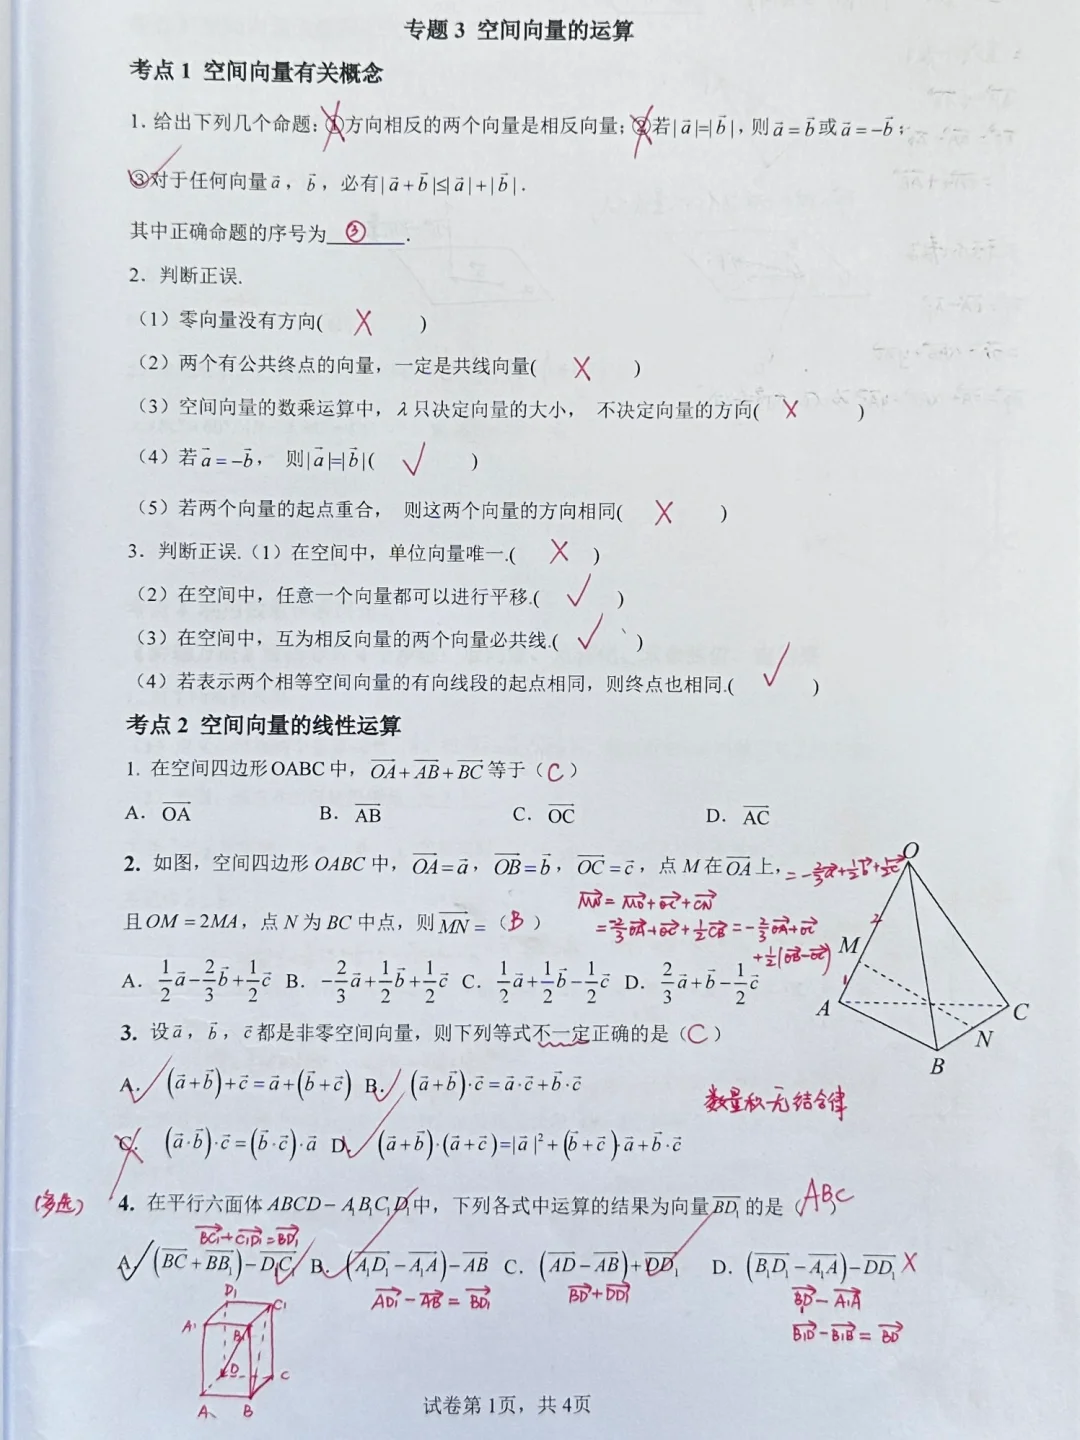 专题 3 空间向量的运算
考点 1 空间向量有关概念
1. 给出下列几个命题:①方向相反的两个向量是相反向量;②若|a⃗|=|b⃗|,则a⃗=b⃗或a⃗=-b⃗;
③对于任何向量a⃗,b⃗,必有|a⃗+b⃗|≤|a⃗|+|b⃗|.
其中正确命题的序号为 ③ .
2. 判断正误.
(1)零向量没有方向( × )
(2)两个有公共终点的向量,一定是共线向量( × )
(3)空间向量的数乘运算中,λ只决定向量的大小, 不决定向量的方向( × )
(4)若a⃗=-b⃗, 则|a⃗|=|b⃗|( ✓ )
(5)若两个向量的起点重合, 则这两个向量的方向相同( × )
3. 判断正误.(1)在空间中,单位向量唯一.( × )
(2)在空间中,任意一个向量都可以进行平移.( ✓ )
(3)在空间中,互为相反向量的两个向量必共线.( ✓ )
(4)若表示两个相等空间向量的有向线段的起点相同,则终点也相同.( ✓ )
考点 2 空间向量的线性运算
1. 在空间四边形OABC 中,OA⃗+AB⃗+BC⃗等于( C )
A. OA⃗ B. AB⃗ C. OC⃗ D. AC⃗
2. 如图,空间四边形 OABC 中,OA⃗=a⃗,OB⃗=b⃗,OC⃗=c⃗,点 M 在OA⃗上, =-2/3a⃗+1/2b⃗+1/2c⃗
MN⃗=MO⃗+OC⃗+CN⃗
且OM=2MA,点 N 为 BC 中点,则MN⃗=( B )
=-2/3OA⃗+OC⃗+1/2CB⃗=-2/3OA⃗+OC⃗
+1/2(OB⃗-OC⃗)
A. 1/2a⃗-2/3b⃗+1/2c⃗ B. -2/3a⃗+1/2b⃗+1/2c⃗ C. 1/2a⃗+1/2b⃗-1/2c⃗ D. 2/3a⃗+b⃗-1/2c⃗
O
2
M
1
A
C
N
B
3. 设a⃗,b⃗,c⃗都是非零空间向量,则下列等式不一定正确的是( C )
A. (a⃗+b⃗)+c⃗=a⃗+(b⃗+c⃗) B. (a⃗+b⃗)·c⃗=a⃗·c⃗+b⃗·c⃗
数量积无结合律
C. (a⃗·b⃗)·c⃗=(b⃗·c⃗)·a⃗ D. (a⃗+b⃗)·(a⃗+c⃗)=|a⃗|²+(b⃗+c⃗)·a⃗+b⃗·c⃗
(多选) 4. 在平行六面体 ABCD-A₁B₁C₁D₁中,下列各式中运算的结果为向量BD₁⃗的是( ABC )
BC₁⃗+C₁D₁⃗=BD₁⃗
A. (BC⃗+BB₁⃗)-D₁C₁⃗ B. (A₁D₁⃗-A₁A⃗)-AB⃗ C. (AD⃗-AB⃗)+DD₁⃗ D. (B₁D₁⃗-A₁A⃗)-DD₁⃗ ×
AD₁⃗-AB⃗=BD₁⃗
BD⃗+DD₁⃗
BD⃗-A₁A⃗
B₁D⃗-B₁B⃗=BD⃗
D₁
C₁
A₁
B₁
D
C
A
B
试卷第 1页,共 4页